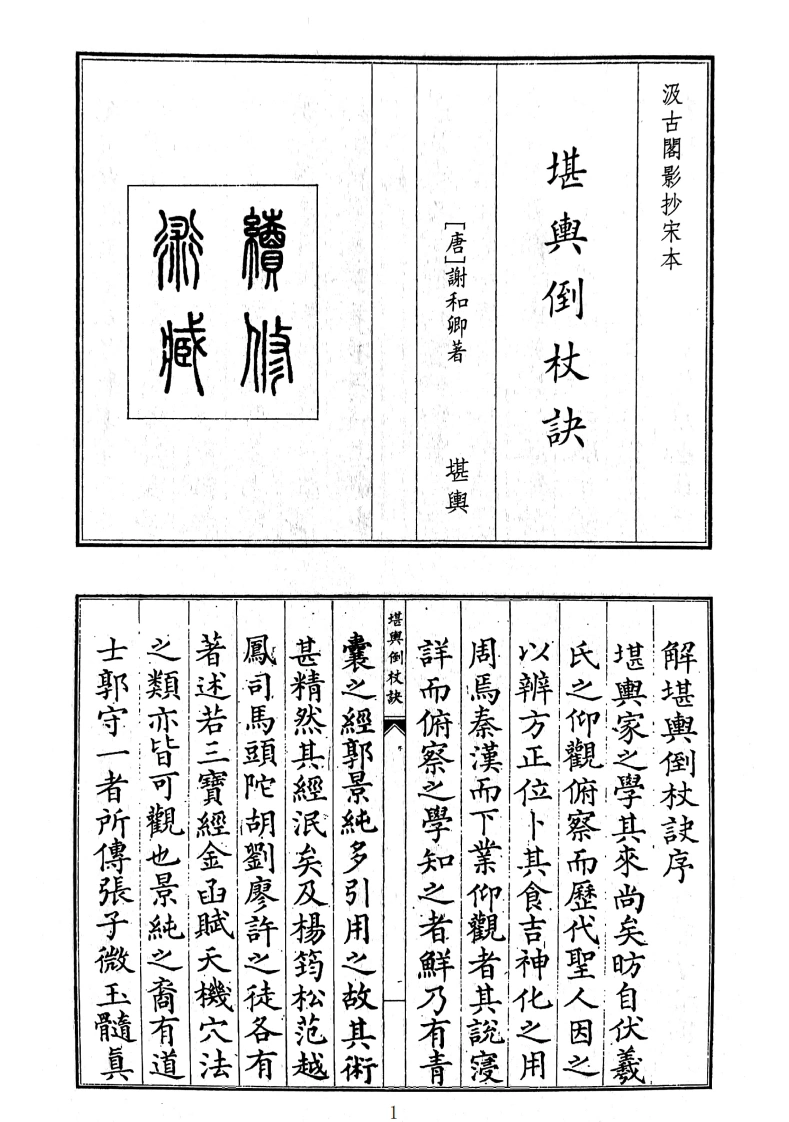 汲古閣影抄宋本
堪輿倒杖訣
［唐］謝和卿著　堪輿
續修
術藏
解堪輿倒杖訣序
堪輿家之學其來尚矣昉自伏羲
氏之仰觀俯察而歷代聖人因之
以辨方正位卜其食吉神化之用
周焉秦漢而下業仰觀者其説寖
詳而俯察之學知之者鮮乃有青
堪輿倒杖訣
囊之經郭景純多引用之故其術
甚精然其經泯矣及楊筠松范越
鳳司馬頭陀胡劉廖許之徒各有
著述若三寶經金函賦天機穴法
之類亦皆可觀也景純之裔有道
士郭守一者所傳張子微玉髓眞
1